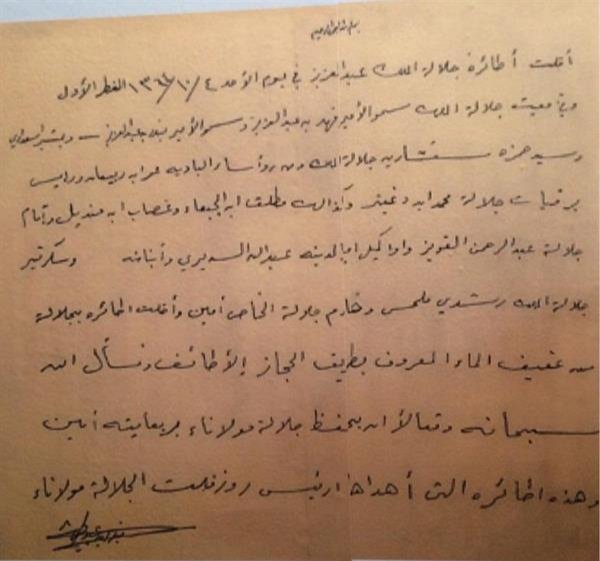 بسم الله الرحمن الرحيم
أقلت الطائرة جلالة الملك عبدالعزيز في يوم الأحد ٤/١٠/١٣٦٤ الفطر الأول
وفي معيت جلالة الملك سمو الأمير فهد بن عبدالعزيز وسمو الأمير بندر بن عبدالعزيز وبشير السعداوي
وسيد حمزه مستشارين جلالة الملك ومن رؤأساء البادية عمر ابن ربيعان ورايس
برقيات جلالة محمد ابن دغيثر وكذالك مطلق ابن الجبعاء وغصاب ابن منديل وأمام
جلالة عبدالرحمن القويز واوا كيل اما لدينه عبدالله السديري وأبنائه وسكرتير
جلالة الملك رشدي ملحس وخادم جلالة الخاص أمين وأقلت الطائره بجلالة
من عفيف الماء المعروف بطريق الحجاز إلى الطائف ونسأل الله
سبحانه وتعالا ان يحفظ جلالة مولاناء برعايته أمين
وهذه الطائره التي أهداها ارئيس روزفلت الجلالة مولاناء